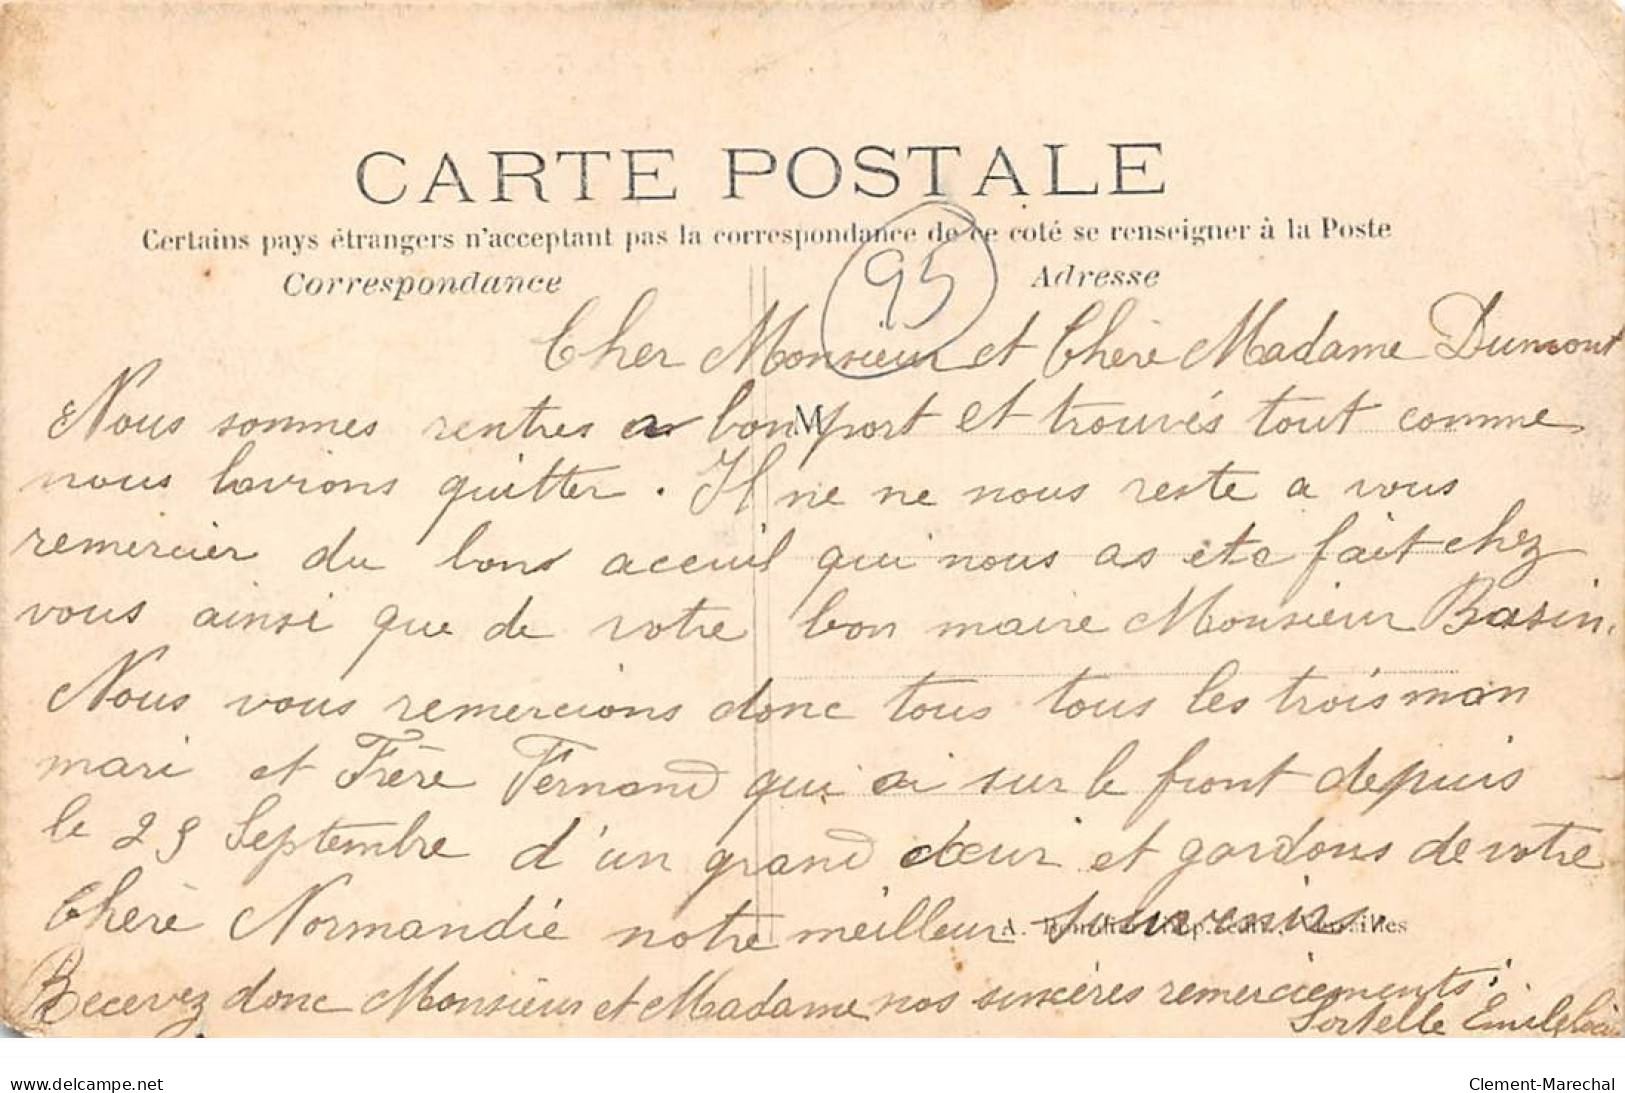 CARTE POSTALE
Certains pays étrangers n'acceptant pas la correspondance de ce coté se renseigner à la Poste
Correspondance
Adresse
95
Cher Monsieur et Chère Madame Dumont
M
Nous sommes rentres a bon port et trouvés tout comme
nous lavions quitter. Il ne ne nous reste a vous
remercier du bons aceuil qui nous as ete fait chez
vous ainsi que de votre bon maire Monsieur Basin.
Nous vous remercions donc tous tous les trois mon
mari et Frère Fernand qui ai sur le front depuis
le 29 Septembre d'un grand cœur et gardons de votre
Chère Normandie notre meilleur souvenirs.
A. Versailles
Recevez donc Monsieur et Madame nos sincères remerciements.
Sortelle
www.delcampe.net
Clement-Marechal